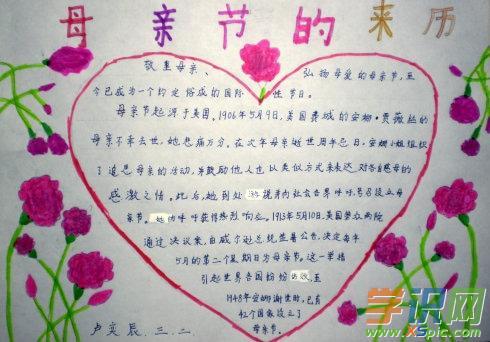 母亲节的来历
敬重母亲、弘扬母爱的母亲节,至
今已成为一个约定俗成的国际性节日。
母亲节起源于美国。1906年5月9日,美国费城的安娜·贾薇丝的
母亲不幸去世,她悲痛万分。在次年母亲逝世周年忌日,安娜小姐组织
了追思母亲的活动,并鼓励他人也以类似方式来表达对各自慈母的
感激之情。此后,她到处游说并向社会各界呼吁,号召设立母
亲节。她的呼吁获得热烈响应。1913年5月10日,美国参众两院
通过决议案,由威尔逊总统签署公告,决定每年
5月的第二个星期日为母亲节。这一举措
引起世界各国纷纷仿效,至
1948年安娜谢世时,已有
42个国家设立了
母亲节。
卢奕辰.三.二
学识网
XSpic.com